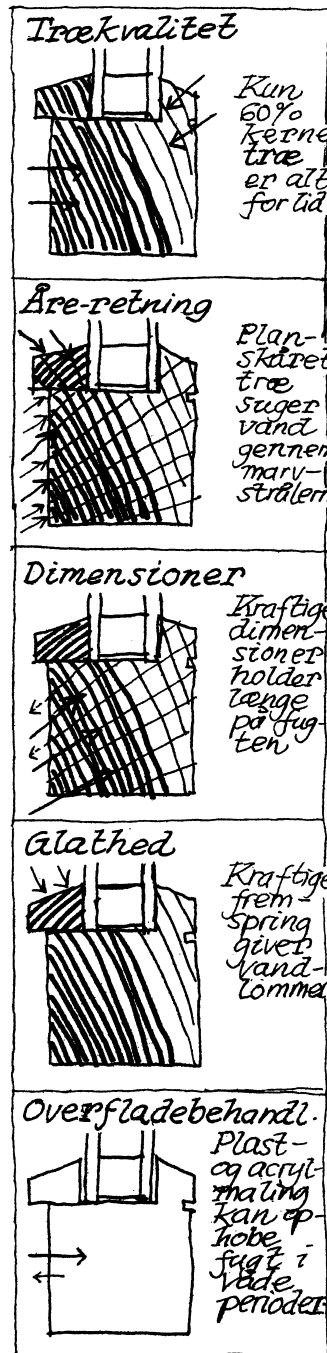 Trækvalitet
Kun
60%
kerne
træ
er alt
for lid
Åre-retning
Plan-
skåret
træ
suger
vand
gennem
marv-
stråler
Dimensioner
Kraftige
dimen-
sioner
holder
længe
på fug-
ten
Glathed
Kraftige
frem-
spring
giver
vand-
lomme
Overfladebehandl.
Plast-
og acryl-
maling
kan op-
hobe
fugt i
våde
perioder